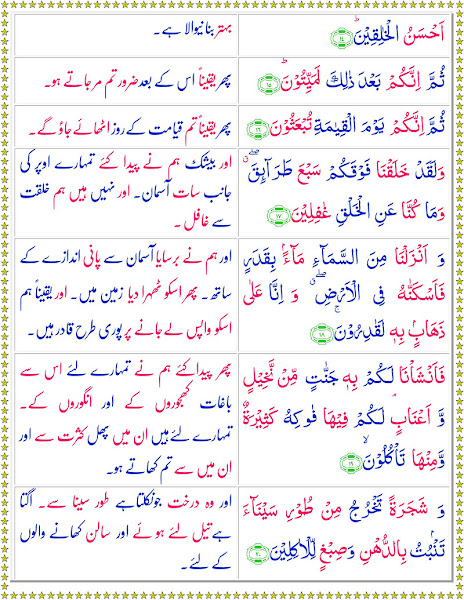 اَحْسَنُ الْخٰلِقِیْنَؕ ۱۴
بہتر بنانیوالا ہے۔
ثُمَّ اِنَّكُمْ بَعْدَ ذٰلِكَ لَمَیِّتُوْنَؕ ۱۵
پھر یقیناً اس کے بعد ضرور تم مرجاتے ہو۔
ثُمَّ اِنَّكُمْ یَوْمَ الْقِیٰمَةِ تُبْعَثُوْنَ ۱۶
پھر یقیناً تم قیامت کے روز اٹھائے جاؤ گے۔
وَلَقَدْ خَلَقْنَا فَوْقَكُمْ سَبْعَ طَرَآىِٕقَ ۖۗ
وَمَا كُنَّا عَنِ الْخَلْقِ غٰفِلِیْنَ ۱۷
اور بیشک ہم نے پیدا کئے تمہارے اوپر کی
جانب سات آسمان۔ اور نہیں ہیں ہم خلقت
سے غافل۔
وَ اَنْزَلْنَا مِنَ السَّمَآءِ مَآءًۢ بِقَدَرٍ
فَاَسْكَنّٰهُ فِی الْاَرْضِ ۖۗ وَ اِنَّا عَلٰی
ذَهَابٍۭ بِهٖ لَقٰدِرُوْنَۚ ۱۸
اور ہم نے برسایا آسمان سے پانی اندازے کے
ساتھ۔ پھر اسکو ٹھہرا دیا زمین میں۔ اور یقیناً ہم
اسکو واپس لے جانے پر پوری طرح قادر ہیں۔
فَاَنْشَاْنَا لَكُمْ بِهٖ جَنّٰتٍ مِّنْ نَّخِیْلٍ
وَّ اَعْنَابٍۘ لَكُمْ فِیْهَا فَوَاكِهُ كَثِیْرَةٌ
وَّمِنْهَا تَاْكُلُوْنَۙ ۱۹
پھر پیدا کئے ہم نے تمہارے لئے اس سے
باغات کھجوروں کے اور انگوروں کے۔
تمہارے لئے ہیں ان میں پھل کثرت سے اور
ان میں سے تم کھاتے ہو۔
وَ شَجَرَةً تَخْرُجُ مِنْ طُوْرِ سَیْنَآءَ
تَنْۢبُتُ بِالدُّهْنِ وَصِبْغٍ لِّلْاٰكِلِیْنَ ۲۰
اور وہ درخت جو نکلتا ہے طور سینا سے۔ اگتا
ہے تیل لئے ہوئے اور سالن کھانے والوں
کے لئے۔